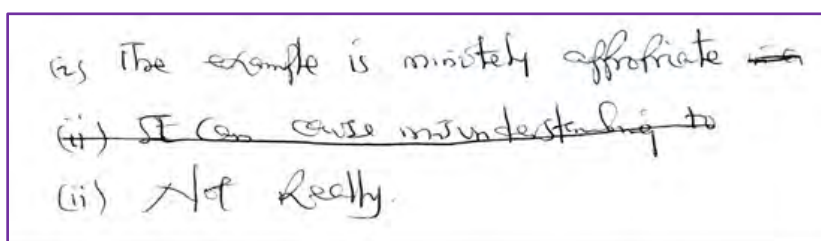 (i) The example is minutely appropriate
(ii) It can cause misunderstanding to
(ii) Not Really.